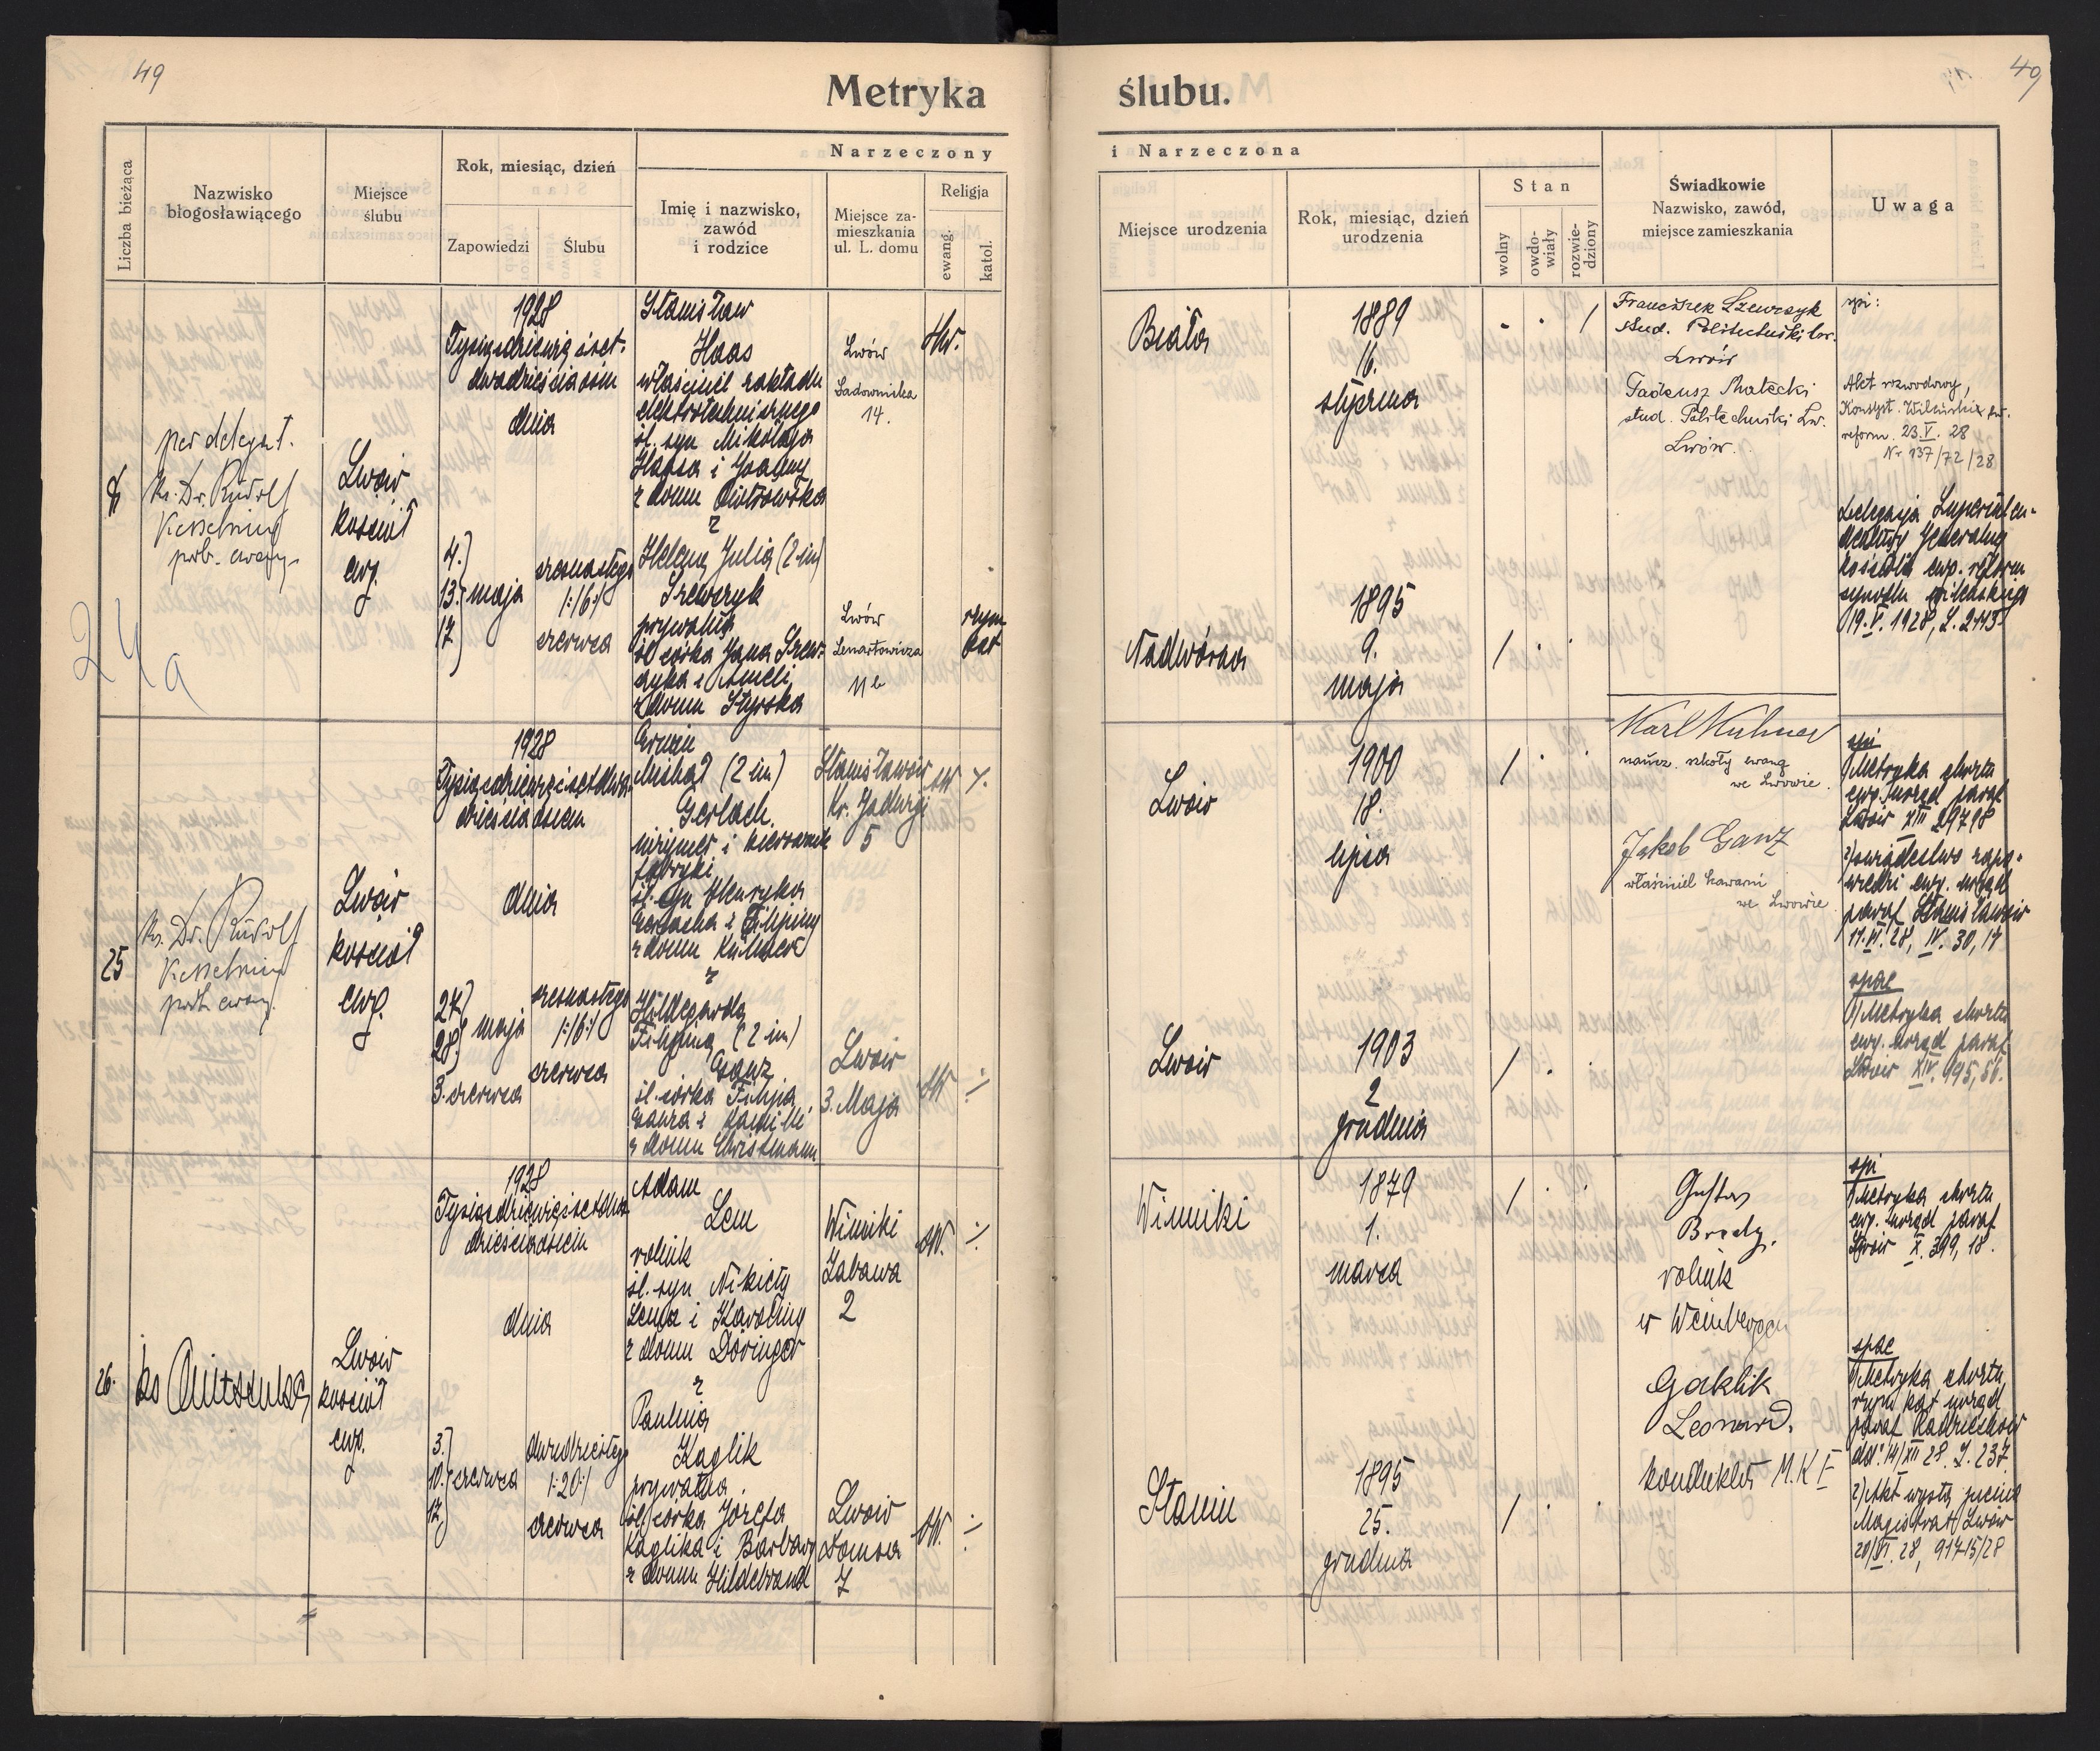 49
Metryka
ślubu.
49
Narzeczony
i Narzeczona
Liczba bieżąca
Nazwisko
błogosławiącego
Miejsce
ślubu
Rok, miesiąc, dzień
Zapowiedzi
Ślubu
Imię i nazwisko,
zawód
i rodzice
Miejsce za-
mieszkania
ul. L. domu
Religja
ewang.
katol.
Miejsce urodzenia
Rok, miesiąc, dzień
urodzenia
Stan
wolny
owdo-
wiały
rozwie-
dziony
Świadkowie
Nazwisko, zawód,
miejsce zamieszkania
Uwaga
24a
per delegat.
ks. Dr. Rudolf
Kesselring
prob. ewang.
Lwów
kościół
ewg.
1928
dnia
4.)
13.) maja
17)
szesnastego
/:16:/
czerwca
Stanisław
Haas
właściciel zakładu
elektrotechnicznego
śl. syn Mikołaja
Haasa i Joanny
z domu Piotrowska
z
Helena Julia (2 im)
Szewczyk
prywatna
śl. córka Jana Szew-
czyka i Anieli
z domu Styrska
Lwów
Sadownicka
14.
Lwów
Lenartowicza
11b
HW.
rzym
kat
Biała
1889
16.
stycznia
Nadwórna
1895
9.
maja
Franciszek Szewczyk
stud. Politechniki Lw.
Lwów
Tadeusz Małecki
stud. Politechniki Lw.
Lwów.
spi:
Akt rozwodowy,
Konsyst. Wileński ew.
reform. 23.V.28
Nr 137/72/28
Delegacja Superinten-
dentury Generalnej
kościoła ewg. reform
synodu wileńskiego
19.V.1928, L. 2113
25
ks. Dr. Rudolf
Kesselring
prob. ewang.
Lwów
kościół
ewg.
1928
Tysiącdziewięćsetdwa-
dzieściaosiem
dnia
27)
28) maja
3. czerwca
szesnastego
/:16:/
czerwca
Erwin
Michał (2 im)
Gerlach
inżynier i kierownik
fabryki
śl. syn Henryka
Gerlacha i Filipiny
z domu Kühner
z
Hildegarda
Filipina (2 im)
Ganz
śl. córka Filipa
Ganza i Kamilli
z domu Christmann
Stanisławów
Kr. Jadwigi
5
Lwów
3. Maja
Lwów
1900
18.
lipca
Lwów
1903
2
grudnia
Karl Kühner
naucz. szkoły ewang
we Lwowie.
Jakob Ganz
właściciel kawarni
we Lwowie
spi
1) Metryka chrztu
ewg. urząd paraf
Lwów XIII 297,98
2) świadectwo zapo-
wiedzi ewg. urząd
paraf Stanisławów
11.VI.28, IV. 30,17
spae
1) Metryka chrztu
ewg. urząd paraf
Lwów XIV. 195, 56.
26.
Lwów
kościół
ewg.
1928
Tysiącdziewięćsetdwa
dzieściaosiem
dnia
3.)
10.) czerwca
17)
dwudziestego
/:20:/
czerwca
Adam
Lem
rolnik
śl. syn Nikicty
Lema i Karoliny
z domu Döringer
z
Paulina
Kaglik
prywatna.
śl. córka Józefa
Kaglika i Barbary
z domu Hildebrand
Winniki
Zabawa
2
Lwów
Domsa
7
HW.
HW.
Winniki
1879
1.
marca
Stanin
1895
25.
grudnia
Gustav
Brody.
rolnik
w Weinbergen
Gaklik
Leonard.
konduktor M.K.E
spi
1) Metryka chrztu
ewg. urząd paraf
Lwów X. 399, 18.
spae
1) Metryka chrztu
rzym kat urząd
paraf Radziechów
dd: 14/XII 28. L. 237.
2) Akt wystąpienia
Magistrat Lwów
20/VI. 28, 91715/28